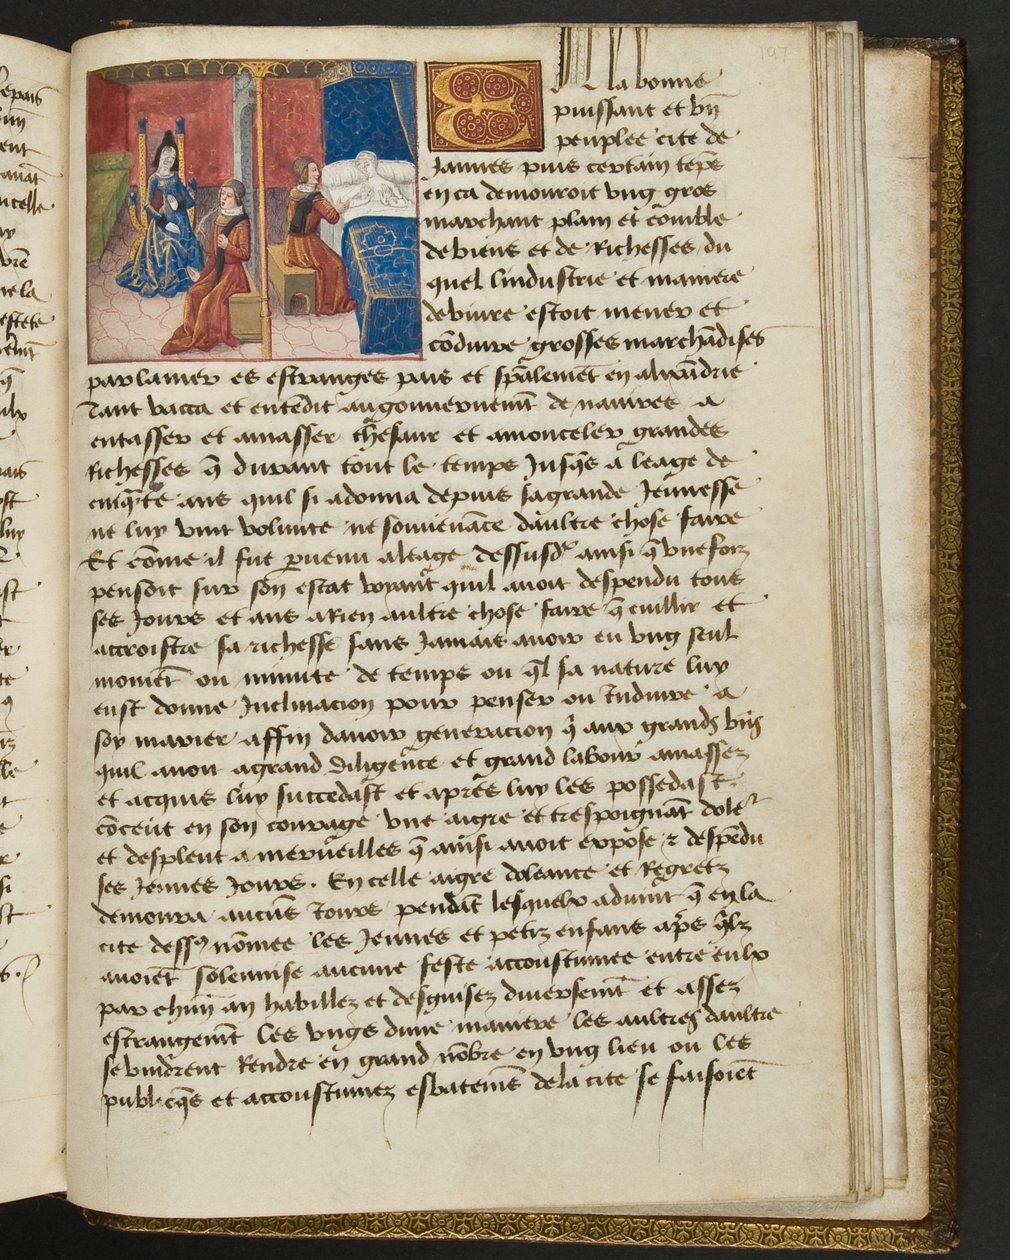 197
En la bonne
puissant et bn̄
peuplee cite de
Jannes puis certain tēps
en ca demouroit vng gros
marchant plain et comble
de biens et de Richesses du
quel lindustrie et maniere
de viure estoit mener et
cōduire grosses marchādises
par la mer es estranges pais et spālemēt en alixādrie
Tant vacca et entēdit au gouuernemt̄ de nauires a
entasser et amasser thesaur et amonceler grandes
Richesses q̄ durant tout le temps Jusq̄s a leage de
cinq̄te ans quil si adonna depuis sa grande Jeunesse
ne luy vint volunte ne souuenāce daultre chose faire
Et cōme il fut puenu a leage dessusd̄ ainsi q̄ vne foiz
pensoit sur son estat voyant quil auoit despendu tous
ses Jours et ans a Rien aultre chose faire q̄ cuillir et
accroistre sa richesse sans Jamais auoir eu vng seul
momēt ou minute de temps ou q̄l sa nature luy
eust donne Inclinacion pour penser ou Induire a
soy marier affin dauoir generacion q̄ aux grands bn̄s
quil auoit a grand diligence et grand labour amassez
et acquis luy succedast et apres luy les possedast
cōceut en son courage vne aigre et trespoignāt doleʳ
et despleut a merueilles q̄ ainsi auoit expose & despēdu
ses Jeunes Jours. En celle aigre doleance et Regretz
demoura aucūs Jours pendāt lesquelx aduint q̄ en la
cite dessꝰ nōmee les Jeunes et petiz enfans ap̄s q̄lz
auoiēt solennise aucune feste accoustumee entre eulx
par chun̄ an habillez et desguisez diuersemt̄ et assez
estrangemt̄ les vngs dune maniere les aultres daultre
se vindrent Rendre en grand nōbre en vng lieu ou les
publicq̄s et accoustumez esbatemēs de la cite se faisoiēt